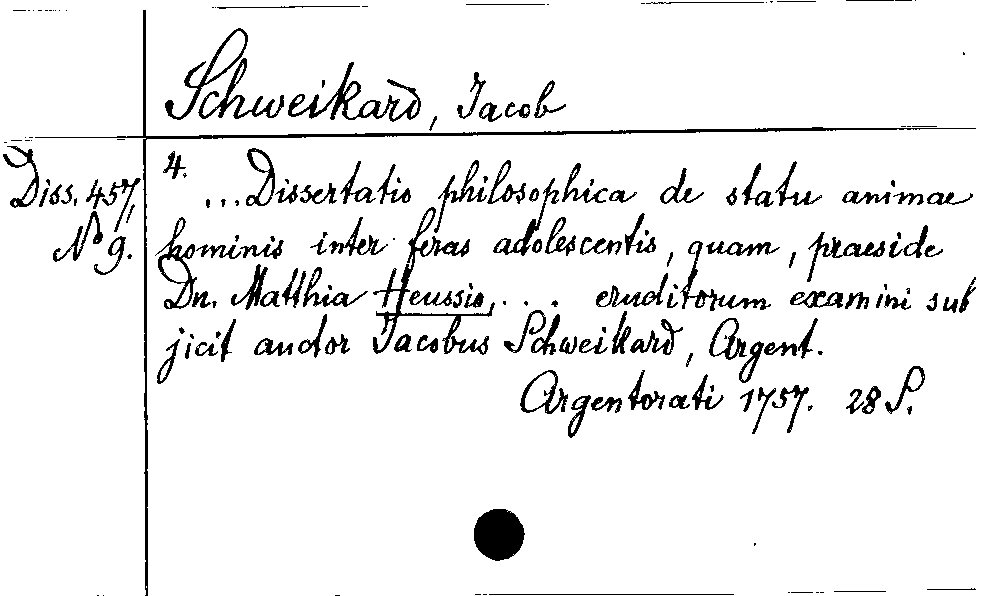 Schweikard, Jacob
Diss. 457,
No 9.
4.
...Dissertatio philosophica de statu animae
hominis inter feras adolescentis, quam, praeside
Dn. Matthia Heussio, ... eruditorum examini sub
jicit auctor Jacobus Schweikard, Argent.
Argentorati 1757. 28 S.